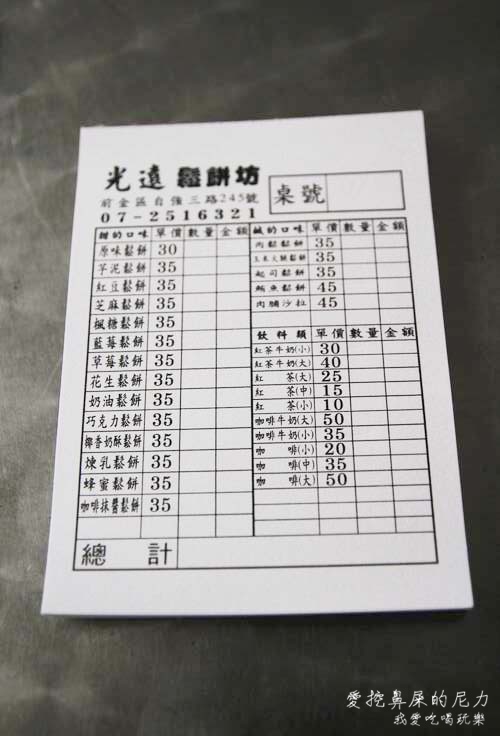 光遠 鬆餅坊
前金區自強三路245號
07-2516321
桌號
甜的口味 單價 數量 金額
原味鬆餅 30
芋泥鬆餅 35
紅豆鬆餅 35
芝麻鬆餅 35
楓糖鬆餅 35
藍莓鬆餅 35
草莓鬆餅 35
花生鬆餅 35
奶油鬆餅 35
巧克力鬆餅 35
椰香奶酥鬆餅 35
煉乳鬆餅 35
蜂蜜鬆餅 35
咖啡抹醬鬆餅 35
鹹的口味 單價 數量 金額
肉鬆鬆餅 35
玉米火腿鬆餅 35
起司鬆餅 35
鮪魚鬆餅 45
肉脯沙拉 45
飲料類 單價 數量 金額
紅茶牛奶(小) 30
紅茶牛奶(大) 40
紅 茶(大) 25
紅 茶(中) 15
紅 茶(小) 10
咖啡牛奶(大) 50
咖啡牛奶(小) 35
咖 啡(小) 20
咖 啡(中) 35
咖 啡(大) 50
總 計
愛挖鼻屎的尼力
我愛吃喝玩樂